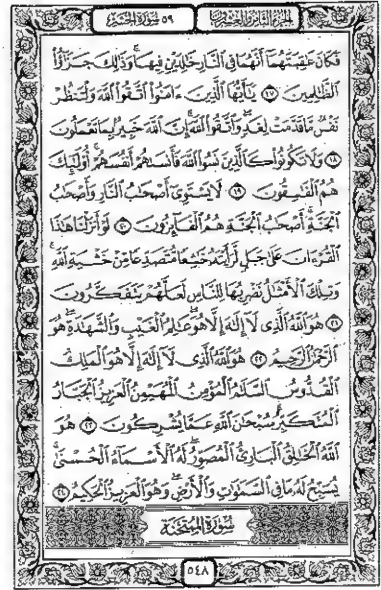 الجزء الثامن والعشرون
٥٩ سورة الحشر
فَكَانَ عَٰقِبَتَهُمَآ أَنَّهُمَا فِى ٱلنَّارِ خَٰلِدَيْنِ فِيهَا ۚ وَذَٰلِكَ جَزَٰٓؤُا۟
ٱلظَّٰلِمِينَ ١٧ يَٰٓأَيُّهَا ٱلَّذِينَ ءَامَنُوا۟ ٱتَّقُوا۟ ٱللَّهَ وَلْتَنظُرْ
نَفْسٌ مَّا قَدَّمَتْ لِغَدٍ ۖ وَٱتَّقُوا۟ ٱللَّهَ ۚ إِنَّ ٱللَّهَ خَبِيرٌۢ بِمَا تَعْمَلُونَ
١٨ وَلَا تَكُونُوا۟ كَٱلَّذِينَ نَسُوا۟ ٱللَّهَ فَأَنسَىٰهُمْ أَنفُسَهُمْ ۚ أُو۟لَٰٓئِكَ
هُمُ ٱلْفَٰسِقُونَ ١٩ لَا يَسْتَوِىٓ أَصْحَٰبُ ٱلنَّارِ وَأَصْحَٰبُ
ٱلْجَنَّةِ ۚ أَصْحَٰبُ ٱلْجَنَّةِ هُمُ ٱلْفَآئِزُونَ ٢٠ لَوْ أَنزَلْنَا هَٰذَا
ٱلْقُرْءَانَ عَلَىٰ جَبَلٍ لَّرَأَيْتَهُۥ خَٰشِعًا مُّتَصَدِّعًا مِّنْ خَشْيَةِ ٱللَّهِ ۚ
وَتِلْكَ ٱلْأَمْثَٰلُ نَضْرِبُهَا لِلنَّاسِ لَعَلَّهُمْ يَتَفَكَّرُونَ
٢١ هُوَ ٱللَّهُ ٱلَّذِى لَآ إِلَٰهَ إِلَّا هُوَ ۖ عَٰلِمُ ٱلْغَيْبِ وَٱلشَّهَٰدَةِ ۖ هُوَ
ٱلرَّحْمَٰنُ ٱلرَّحِيمُ ٢٢ هُوَ ٱللَّهُ ٱلَّذِى لَآ إِلَٰهَ إِلَّا هُوَ ٱلْمَلِكُ
ٱلْقُدُّوسُ ٱلسَّلَٰمُ ٱلْمُؤْمِنُ ٱلْمُهَيْمِنُ ٱلْعَزِيزُ ٱلْجَبَّارُ
ٱلْمُتَكَبِّرُ ۚ سُبْحَٰنَ ٱللَّهِ عَمَّا يُشْرِكُونَ ٢٣ هُوَ
ٱللَّهُ ٱلْخَٰلِقُ ٱلْبَارِئُ ٱلْمُصَوِّرُ ۖ لَهُ ٱلْأَسْمَآءُ ٱلْحُسْنَىٰ ۚ
يُسَبِّحُ لَهُۥ مَا فِى ٱلسَّمَٰوَٰتِ وَٱلْأَرْضِ ۖ وَهُوَ ٱلْعَزِيزُ ٱلْحَكِيمُ ٢٤
سورة الممتحنة
٥٤٨